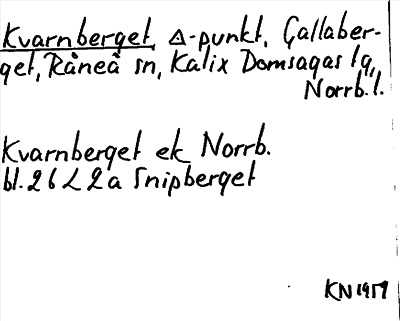 Kvarnberget, △-punkt, Gallaber-
get, Råneå sn, Kalix Domsagas tg,
Norrb.l.
Kvarnberget ek Norrb.
bl. 26 L 2a Snipberget